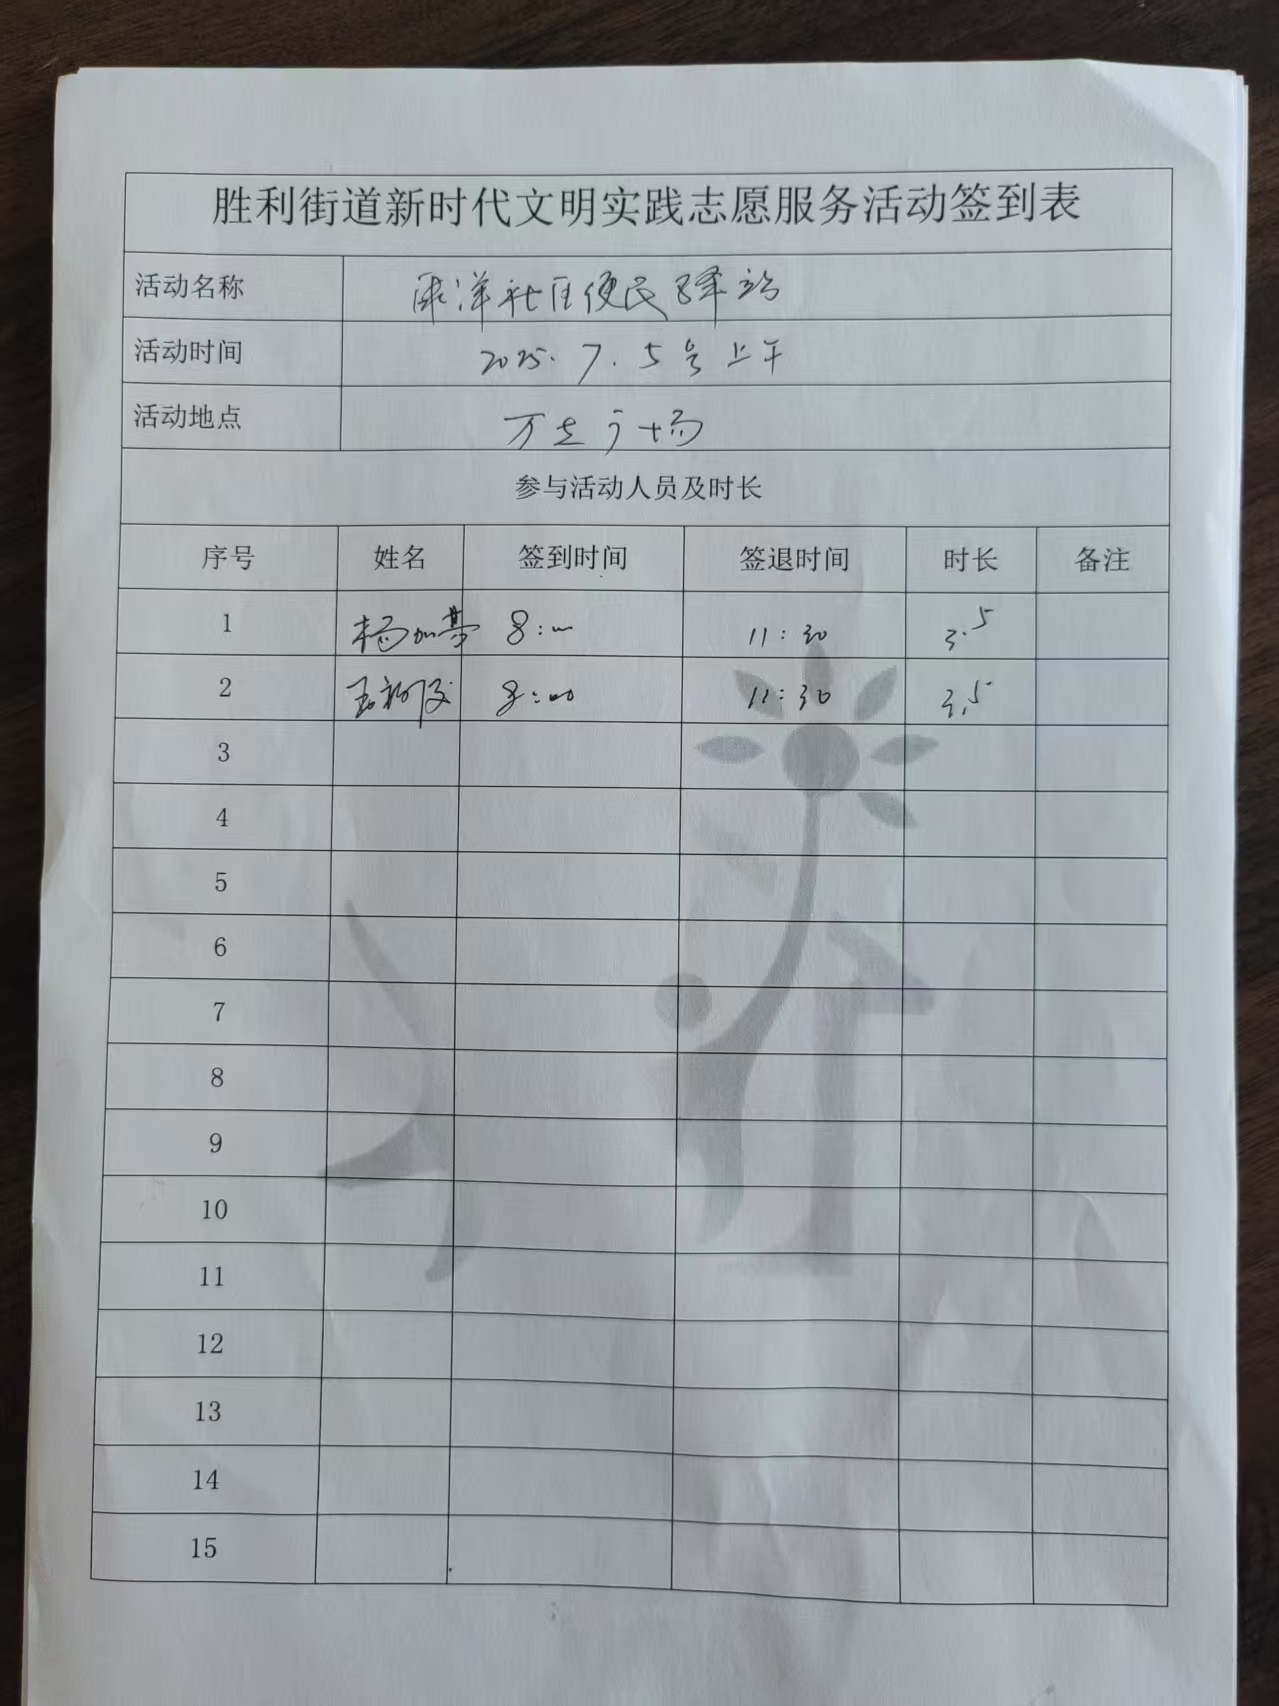 胜利街道新时代文明实践志愿服务活动签到表
活动名称 洋社区便民驿站
活动时间 2025.7.5号上午
活动地点 万达广场
参与活动人员及时长
序号 姓名 签到时间 签退时间 时长 备注
1 杨加 8:00 11:30 3.5
2 8:00 11:30 3.5
3
4
5
6
7
8
9
10
11
12
13
14
15